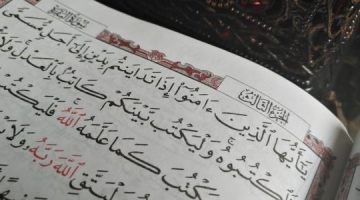 الجزء الثالث
يَٰٓأَيُّهَا ٱلَّذِينَ ءَامَنُوٓا۟ إِذَا تَدَايَنتُم بِدَيْنٍ إِلَىٰٓ أَجَلٍ مُّسَمًّى
فَٱكْتُبُوهُ وَلْيَكْتُب بَّيْنَكُمْ كَاتِبٌۢ بِٱلْعَدْلِ وَلَا
يَكْتُبَ كَمَا عَلَّمَهُ ٱللَّهُ فَلْيَكْتُبْ
ٱللَّهَ رَبَّهُۥ وَلَا